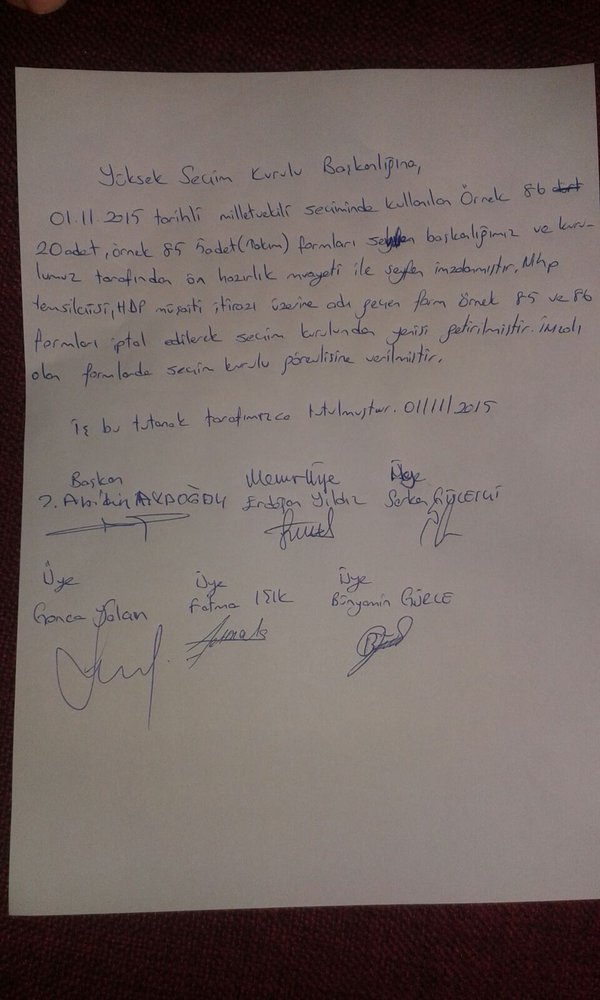 Yüksek Seçim Kurulu Başkanlığına,
01.11.2015 tarihli milletvekili seçiminde kullanılan Örnek 86
20 adet, örnek 85 5 adet (Takım) formları başkanlığımız ve kuru-
lumuz tarafından ön hazırlık mvayeti ile seyfen imzalanmıştır. Mhp
temsilcisi, HDP müşaiti itirazı üzerine adı geçen form örnek 85 ve 86
formları iptal edilerek seçim kurulundan yenisi getirilmiştir. İmzalı
olan formlarda seçim kurulu görevlisine verilmiştir.
İş bu tutanak tarafımızca tutulmuştur. 01/11/2015
Başkan Memur Üye Üye
AKDOĞDU Erdoğan Yıldız Serkan
Üye Üye Üye
Gonca Yolan Fatma IŞIK Bünyamin GÜRLE